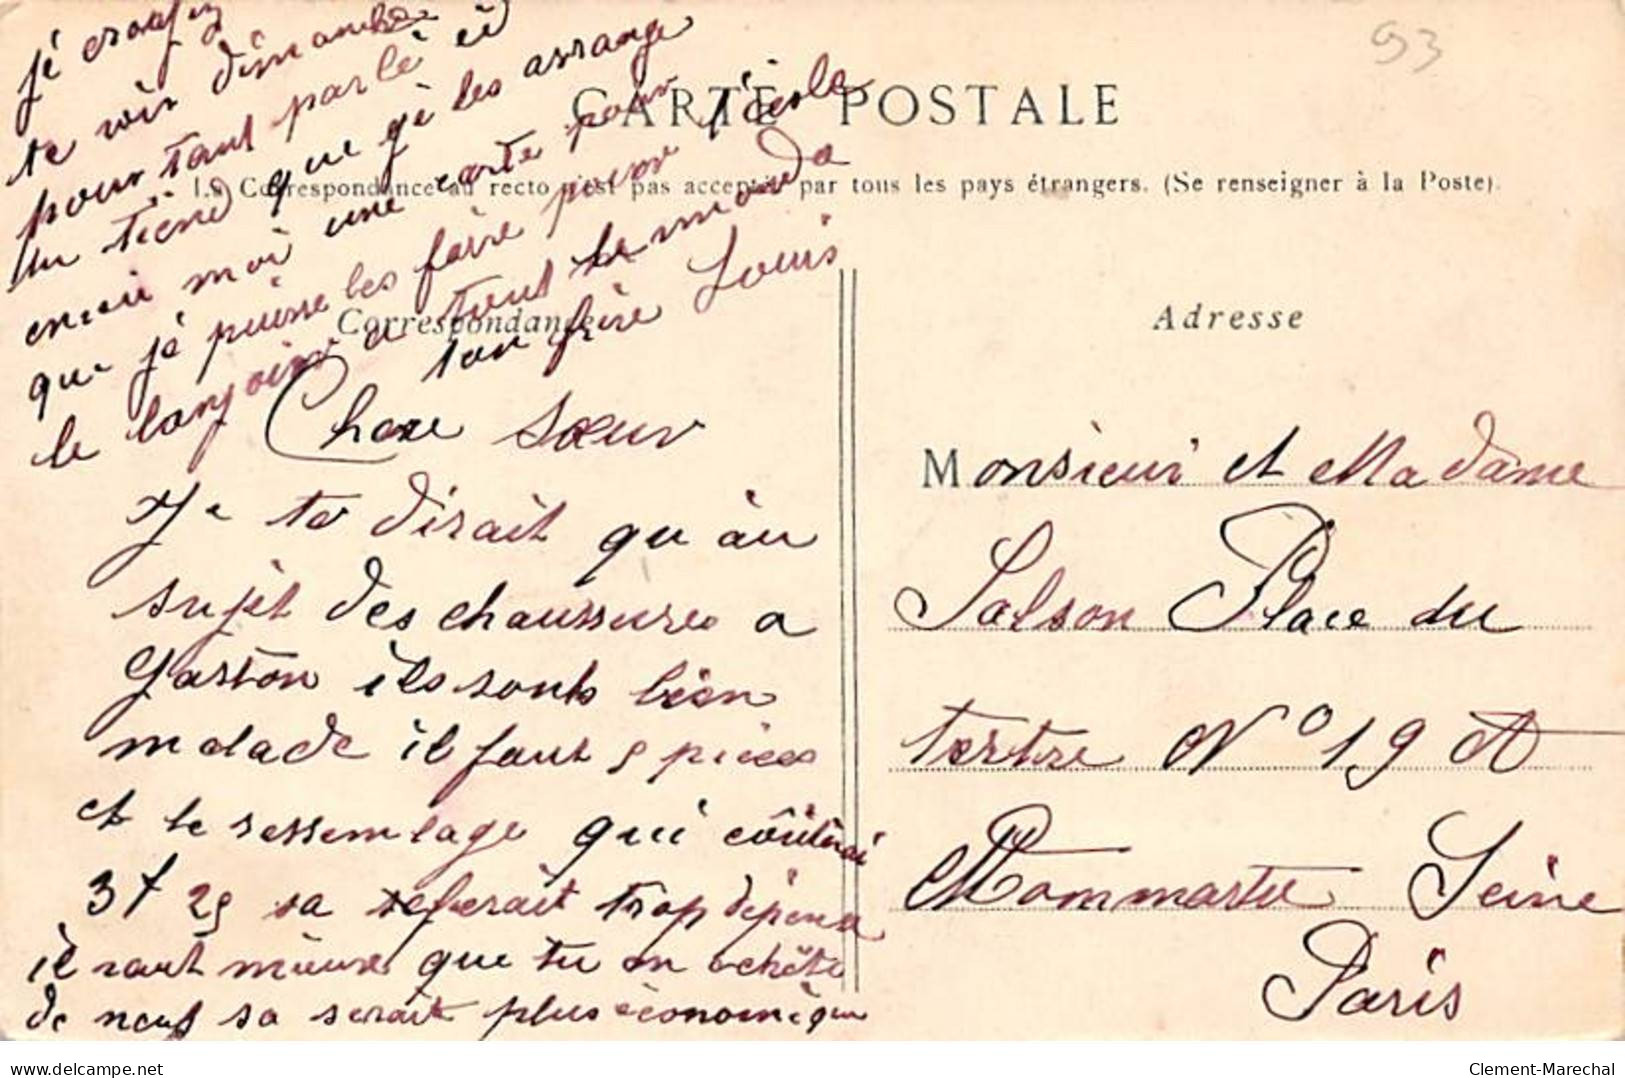 CARTE POSTALE
La Correspondance au recto n'est pas acceptée par tous les pays étrangers. (Se renseigner à la Poste).
Correspondance
Chere sœur
Je te dirait qu'au
sujet des chaussures a
Gaston ils sonts bien
malade il faut 5 pièces
et le ressemlage qui coûterai
3f 25 sa referait trop dépense
il vaut mieux que tu en achète
de neuf sa serait plus économique
je croyez
te voir dimanche
pour tant parle
un tiend que je les arrange
envoie moi une carte pour
que je puisse les faire pour l'écols
le bonjoir a tout le monde
ton frère Louis
Adresse
Monsieur et Madame
Salson Place du
tertre N° 19 A
Mommartre Seine
Paris
93
www.delcampe.net
Clement-Marechal